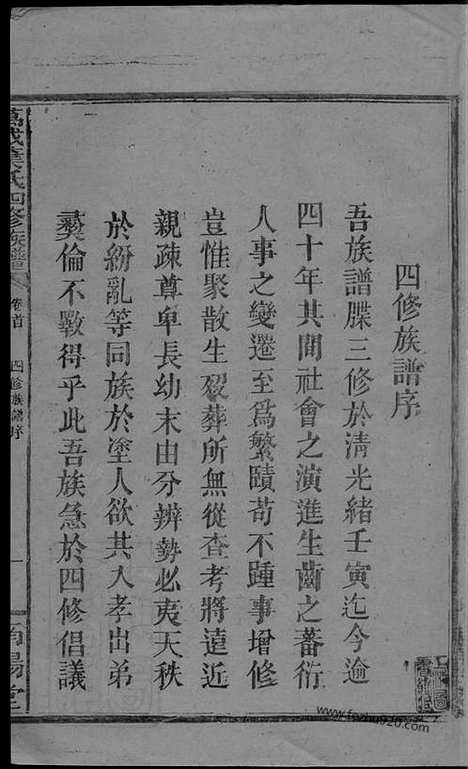 四修族譜序
吾族譜牒三修於清光緒壬寅迄今逾
四十年其間社會之演進生齒之蕃衍
人事之變遷至為繁賾苟不踵事增修
豈惟聚散生歿葬所無從查考將遠近
親疎尊卑長幼末由分辨勢必夷天秩
於紛亂等同族於塗人欲其入孝出弟
彝倫不斁得乎此吾族急於四修倡議
萬載葉氏四修族譜
卷首
四修族譜序
一
南陽堂